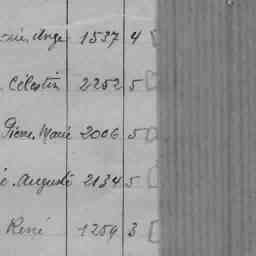 Ange 1537 4
Célestin 2252 5
Pierre Marie 2006 5
Auguste 2134 5
René 1259 3